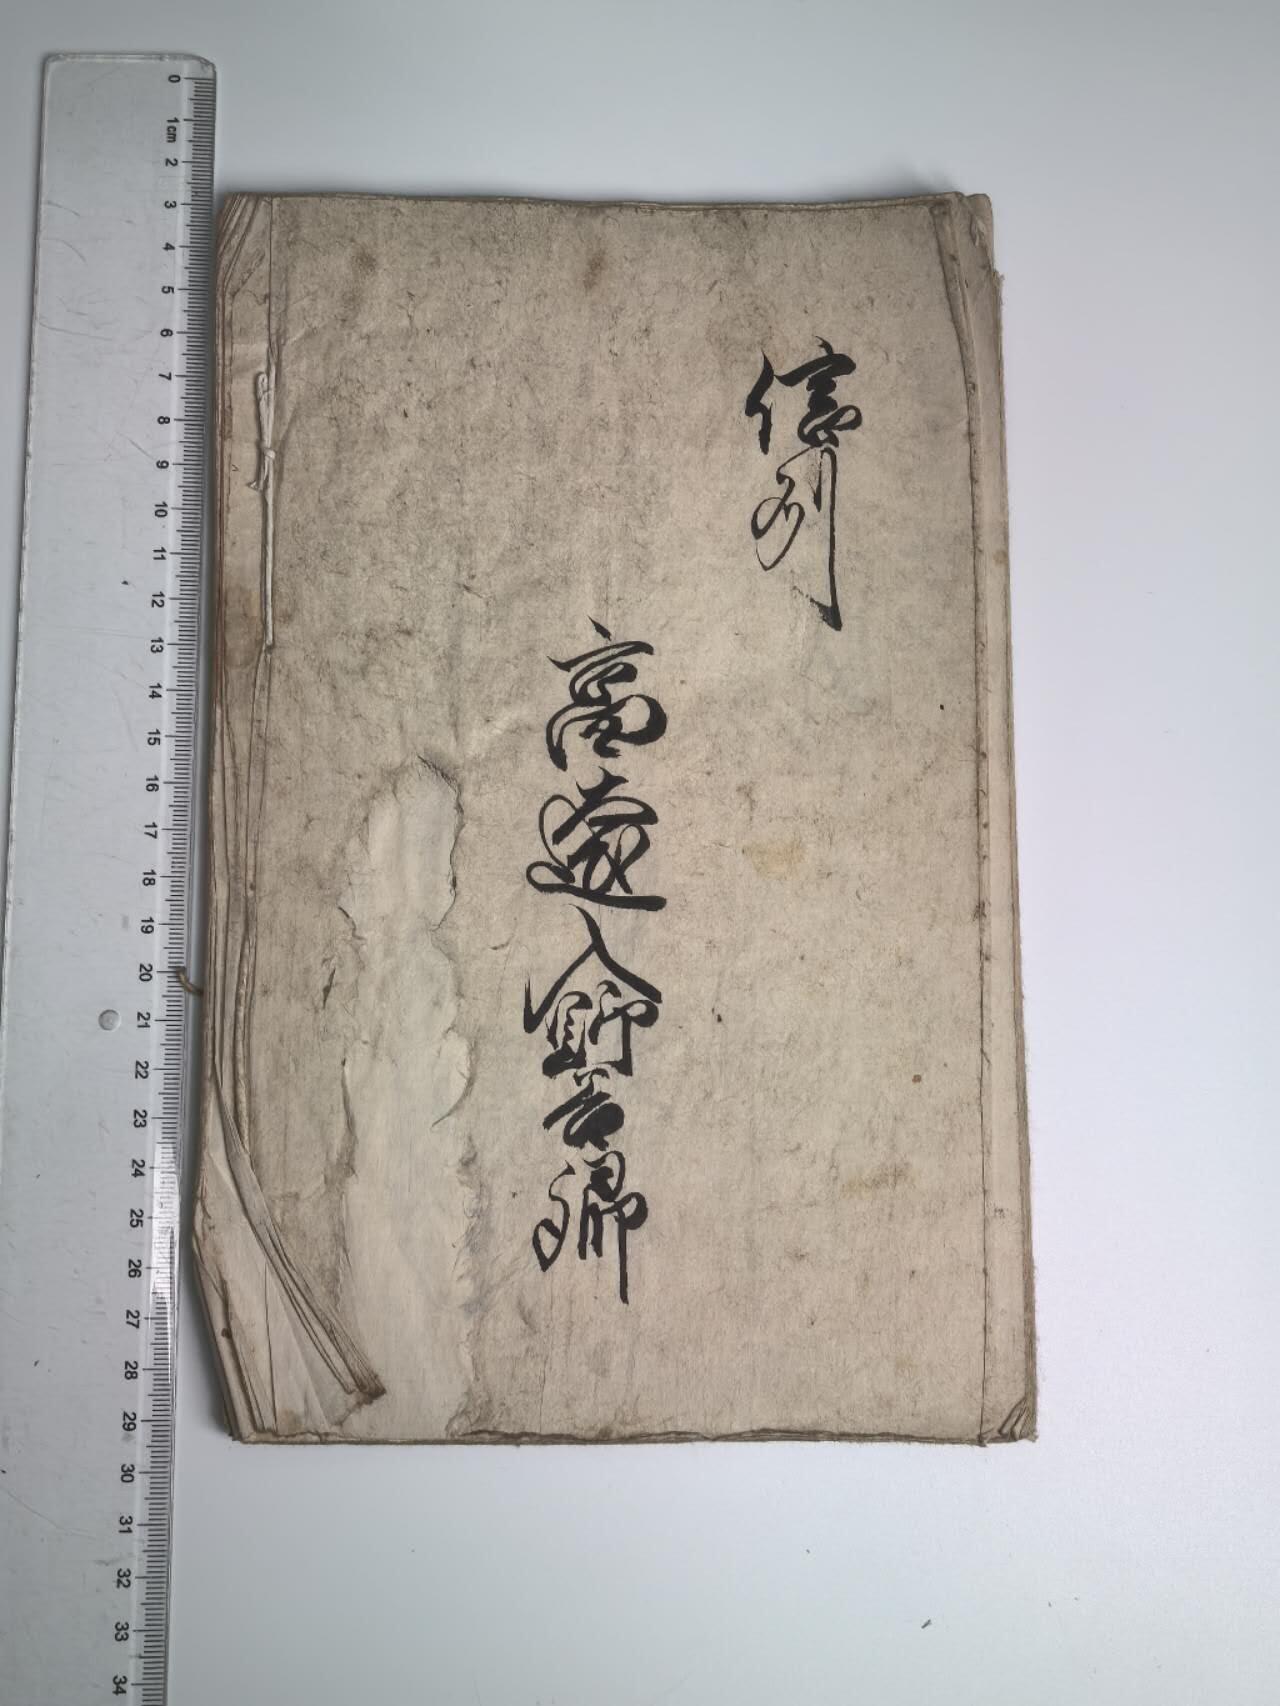 信州
高遠入野谷郷
0
1cm
2
3
4
5
6
7
8
9
10
11
12
13
14
15
16
17
18
19
20
21
22
23
24
25
26
27
28
29
30
31
32
33
34